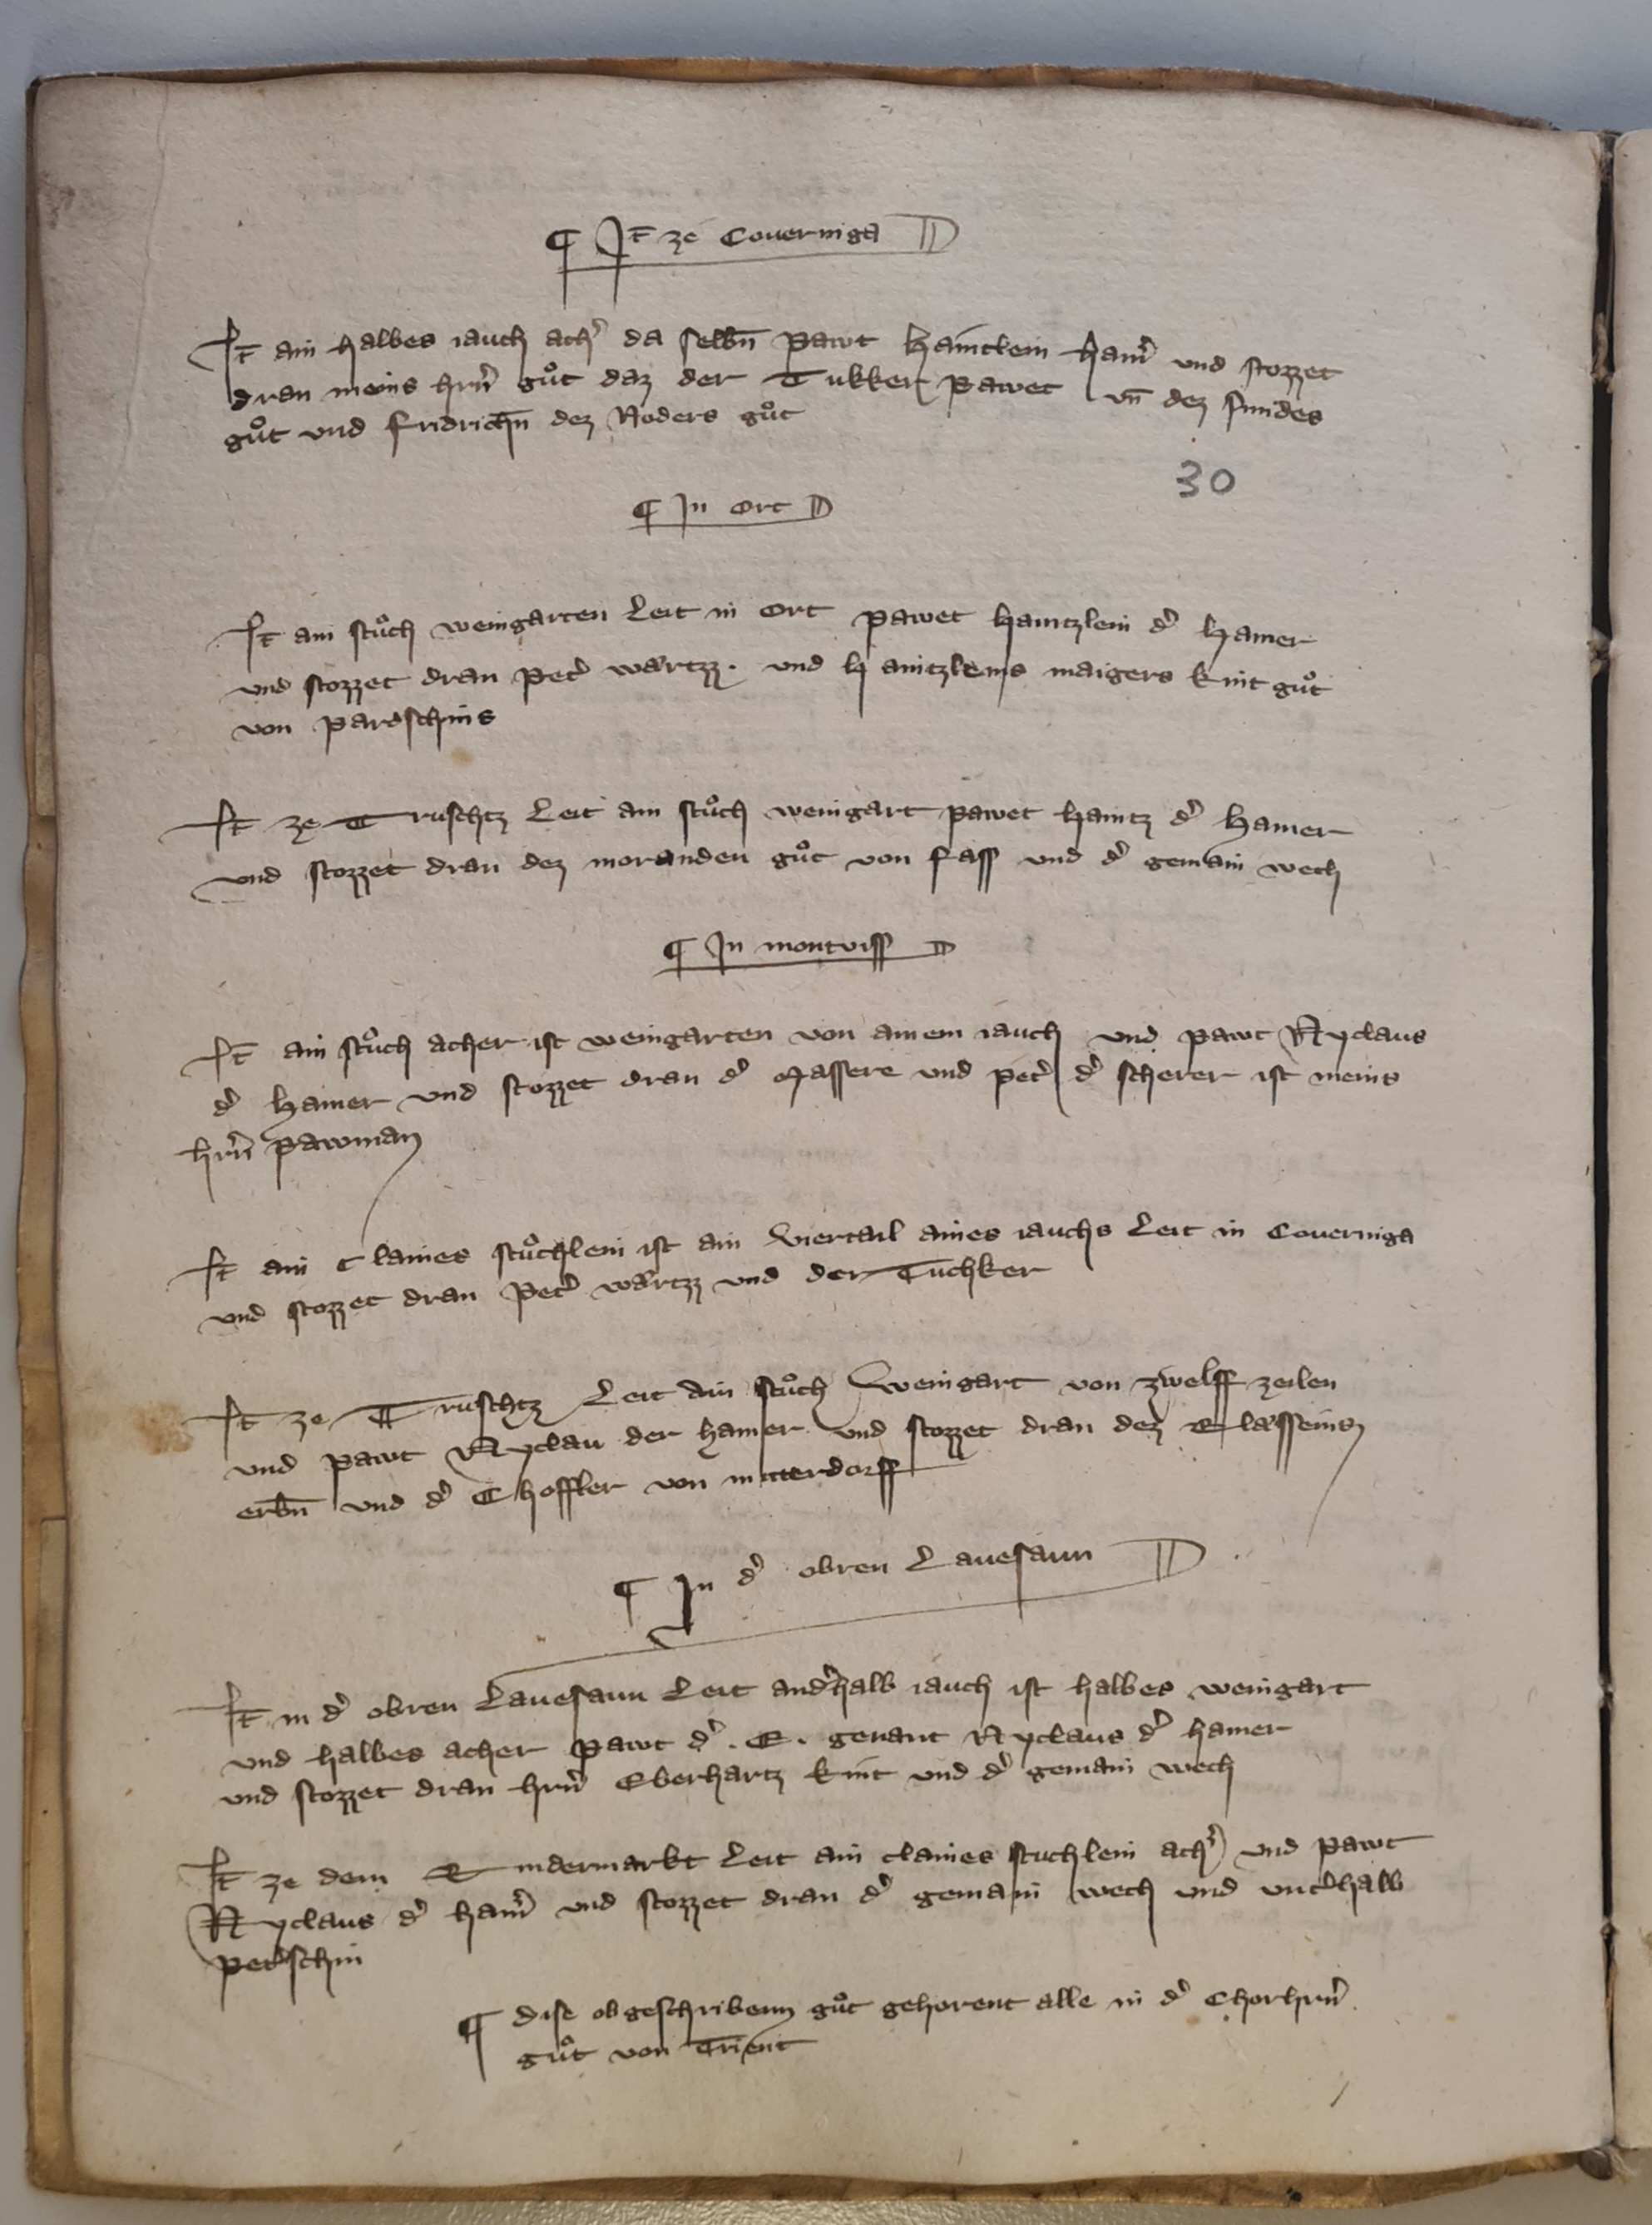 ¶ It̄ ze Couerniga
It̄ ain halbes iauch ach᷑ da selbn̄ pawt Haintlein ham᷑ und stozzet
dran meins hrn᷑ guͦt daz der Tukker pawet vn̄ dez smides
guͦt vnd fridrichn̄ dez Roders guͦt
30
¶ In Ort
It̄ ain stuͦch weingarten Leit in Ort pawet haintzlein d᷑ hamer
vnd stozzet dran Pet᷑ wärtzz. vnd Haintzleins maigers kint guͦt
von pardschins
It̄ ze Truschtz Leit ain stuͦch weingart pawet haintz d᷑ Hamer
vnd stozzet dran dez moranden guͦt von fass vnd d᷑ gemain wech
¶ In montviss
It̄ ain stuͦch acher ist weingarten von ainem iauch vnd pawt Nyclaus
d᷑ Hamer vnd stozzet dran d᷑ Massere vnd pet᷑ d᷑ scherer ist meins
hrn᷑ pawman
It̄ ain claines stuͦchlein ist ain viertail aines iauchs Leit in Couerniga
vnd stozzet dran Pet᷑ wärtzz vnd der Tuchker
It̄ ze Truschtz Leit ain stuͦch Weingart von zwelff zeilen
vnd pawt Nyclau der hamer vnd stozzet dran dez Elässeins
erbn̄ vnd d᷑ Choffler von mitterdorff
¶ In d᷑ obren Lauesaun
It̄ in d᷑ obren Lauesaun Leit and᷑halb iauch ist halbes weingart
vnd halbes acher pawt d᷑ . E . genant Nyclaus d᷑ hamer
vnd stozzet dran hrn᷑ Eberhartz kint vnd d᷑ gemain wech
It̄ ze dem Rindermarkt Leit ain claines stuchlein ach᷑ vnd pawt
Nyclaus d᷑ ham᷑ vnd stozzet dran d᷑ gemain wech vnd vnt᷑halb
pet᷑schin
¶ dise obgeschribenn guͦt gehorent alle in d᷑ Chorhrn᷑
guͦt von Trient